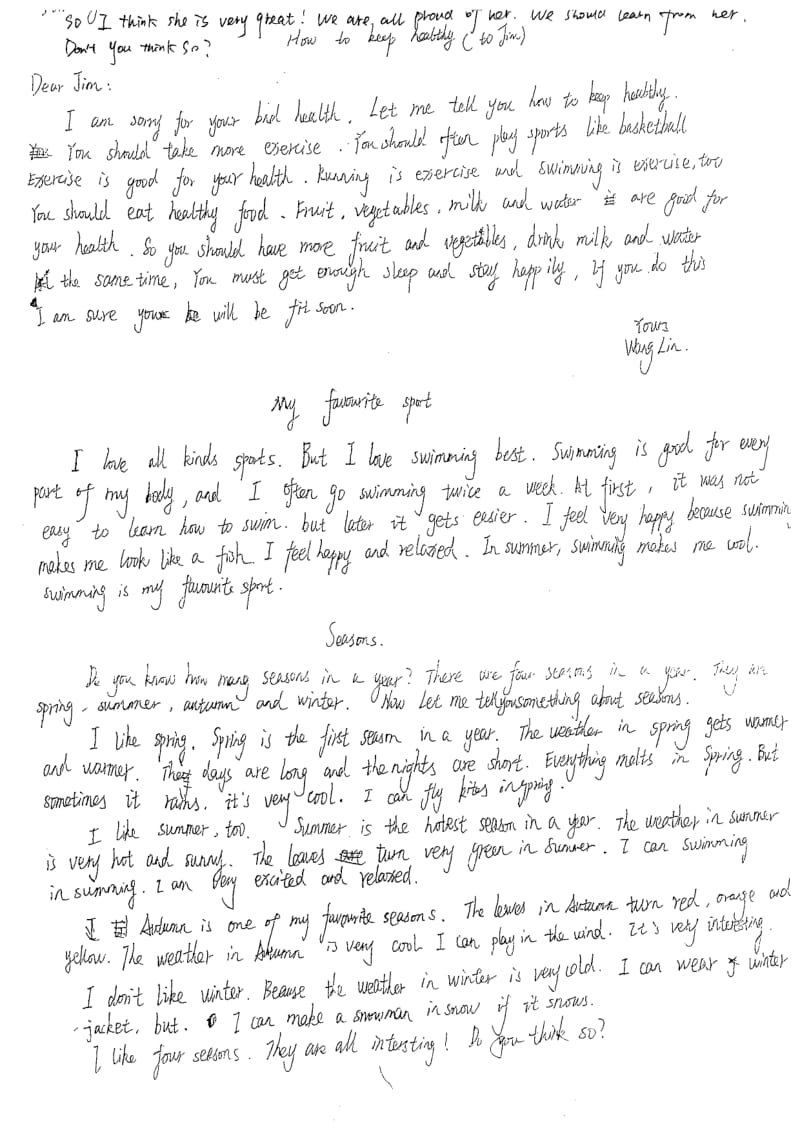 So I think she is very great! We are all proud of her. We should learn from her.
Don't you think so?
How to keep healthy (to Jim)
Dear Jim:
I am sorry for your bad health. Let me tell you how to keep healthy.
You should take more exercise. You should often play sports like basketball
Exercise is good for your health. Running is exercise and swimming is exercise, too
You should eat healthy food. Fruit, vegetables, milk and water are good for
your health. So you should have more fruit and vegetables, drink milk and water
At the same time, You must get enough sleep and stay happily, If you do this
I am sure you will be fit soon.
Yours
Wang Lin.
My favourite sport
I love all kinds sports. But I love swimming best. Swimming is good for every
part of my body, and I often go swimming twice a week. At first, it was not
easy to learn how to swim. but later it gets easier. I feel very happy because swimming
makes me look like a fish I feel happy and relaxed. In summer, swimming makes me cool.
swimming is my favourite sport.
Seasons.
Do you know how many seasons in a year? There are four seasons in a year. They are
spring, summer, autumn and winter. Now Let me tell you something about seasons.
I like spring. Spring is the first season in a year. The weather in spring gets warmer
and warmer. The days are long and the nights are short. Everything melts in Spring. But
sometimes it rains. it's very cool. I can fly kites in spring.
I like summer, too. Summer is the hotest season in a year. The weather in summer
is very hot and sunny. The leaves turn very green in Summer. I can swimming
in summing. I am very excited and relaxed.
Autumn is one of my favourite seasons. The leaves in Autumn turn red, orange and
yellow. The weather in Autumn is very cool I can play in the wind. It's very interesting.
I don't like winter. Beause the weather in winter is very cold. I can wear winter
jacket, but. I can make a snowman in snow if it snows.
I like four seasons. They are all intersting! Do you think so?